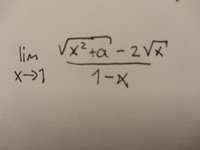 lim x→1 (√(x²+a) - 2√x) / (1-x)